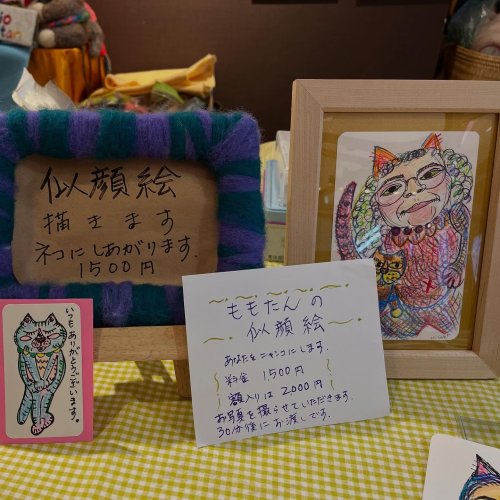 似顔絵
描きます
ネコにしあがります.
1500円
ももたんの
似顔絵
あなたをニャンコにします.
料金 1,500円
額入りは 2,000円
お写真を撮らせていただきます.
30分後にお渡しです.
いつもありがとうございます。